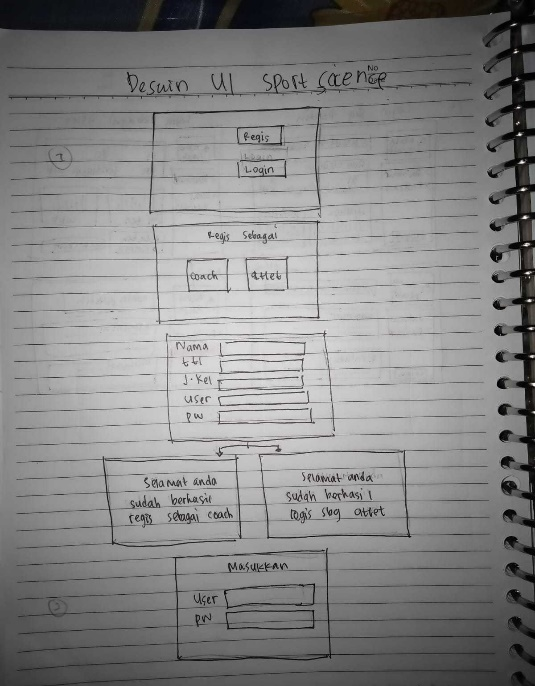 Desain UI Sport Science
No
1
Regis
Login
Regis Sebagai
Coach
atlet
Nama
ttl
J.Kel
user
pw
Selamat anda
sudah berhasil
regis sebagai coach
Selamat anda
sudah berhasil
regis sbg atlet
2
Masukkan
User
pw